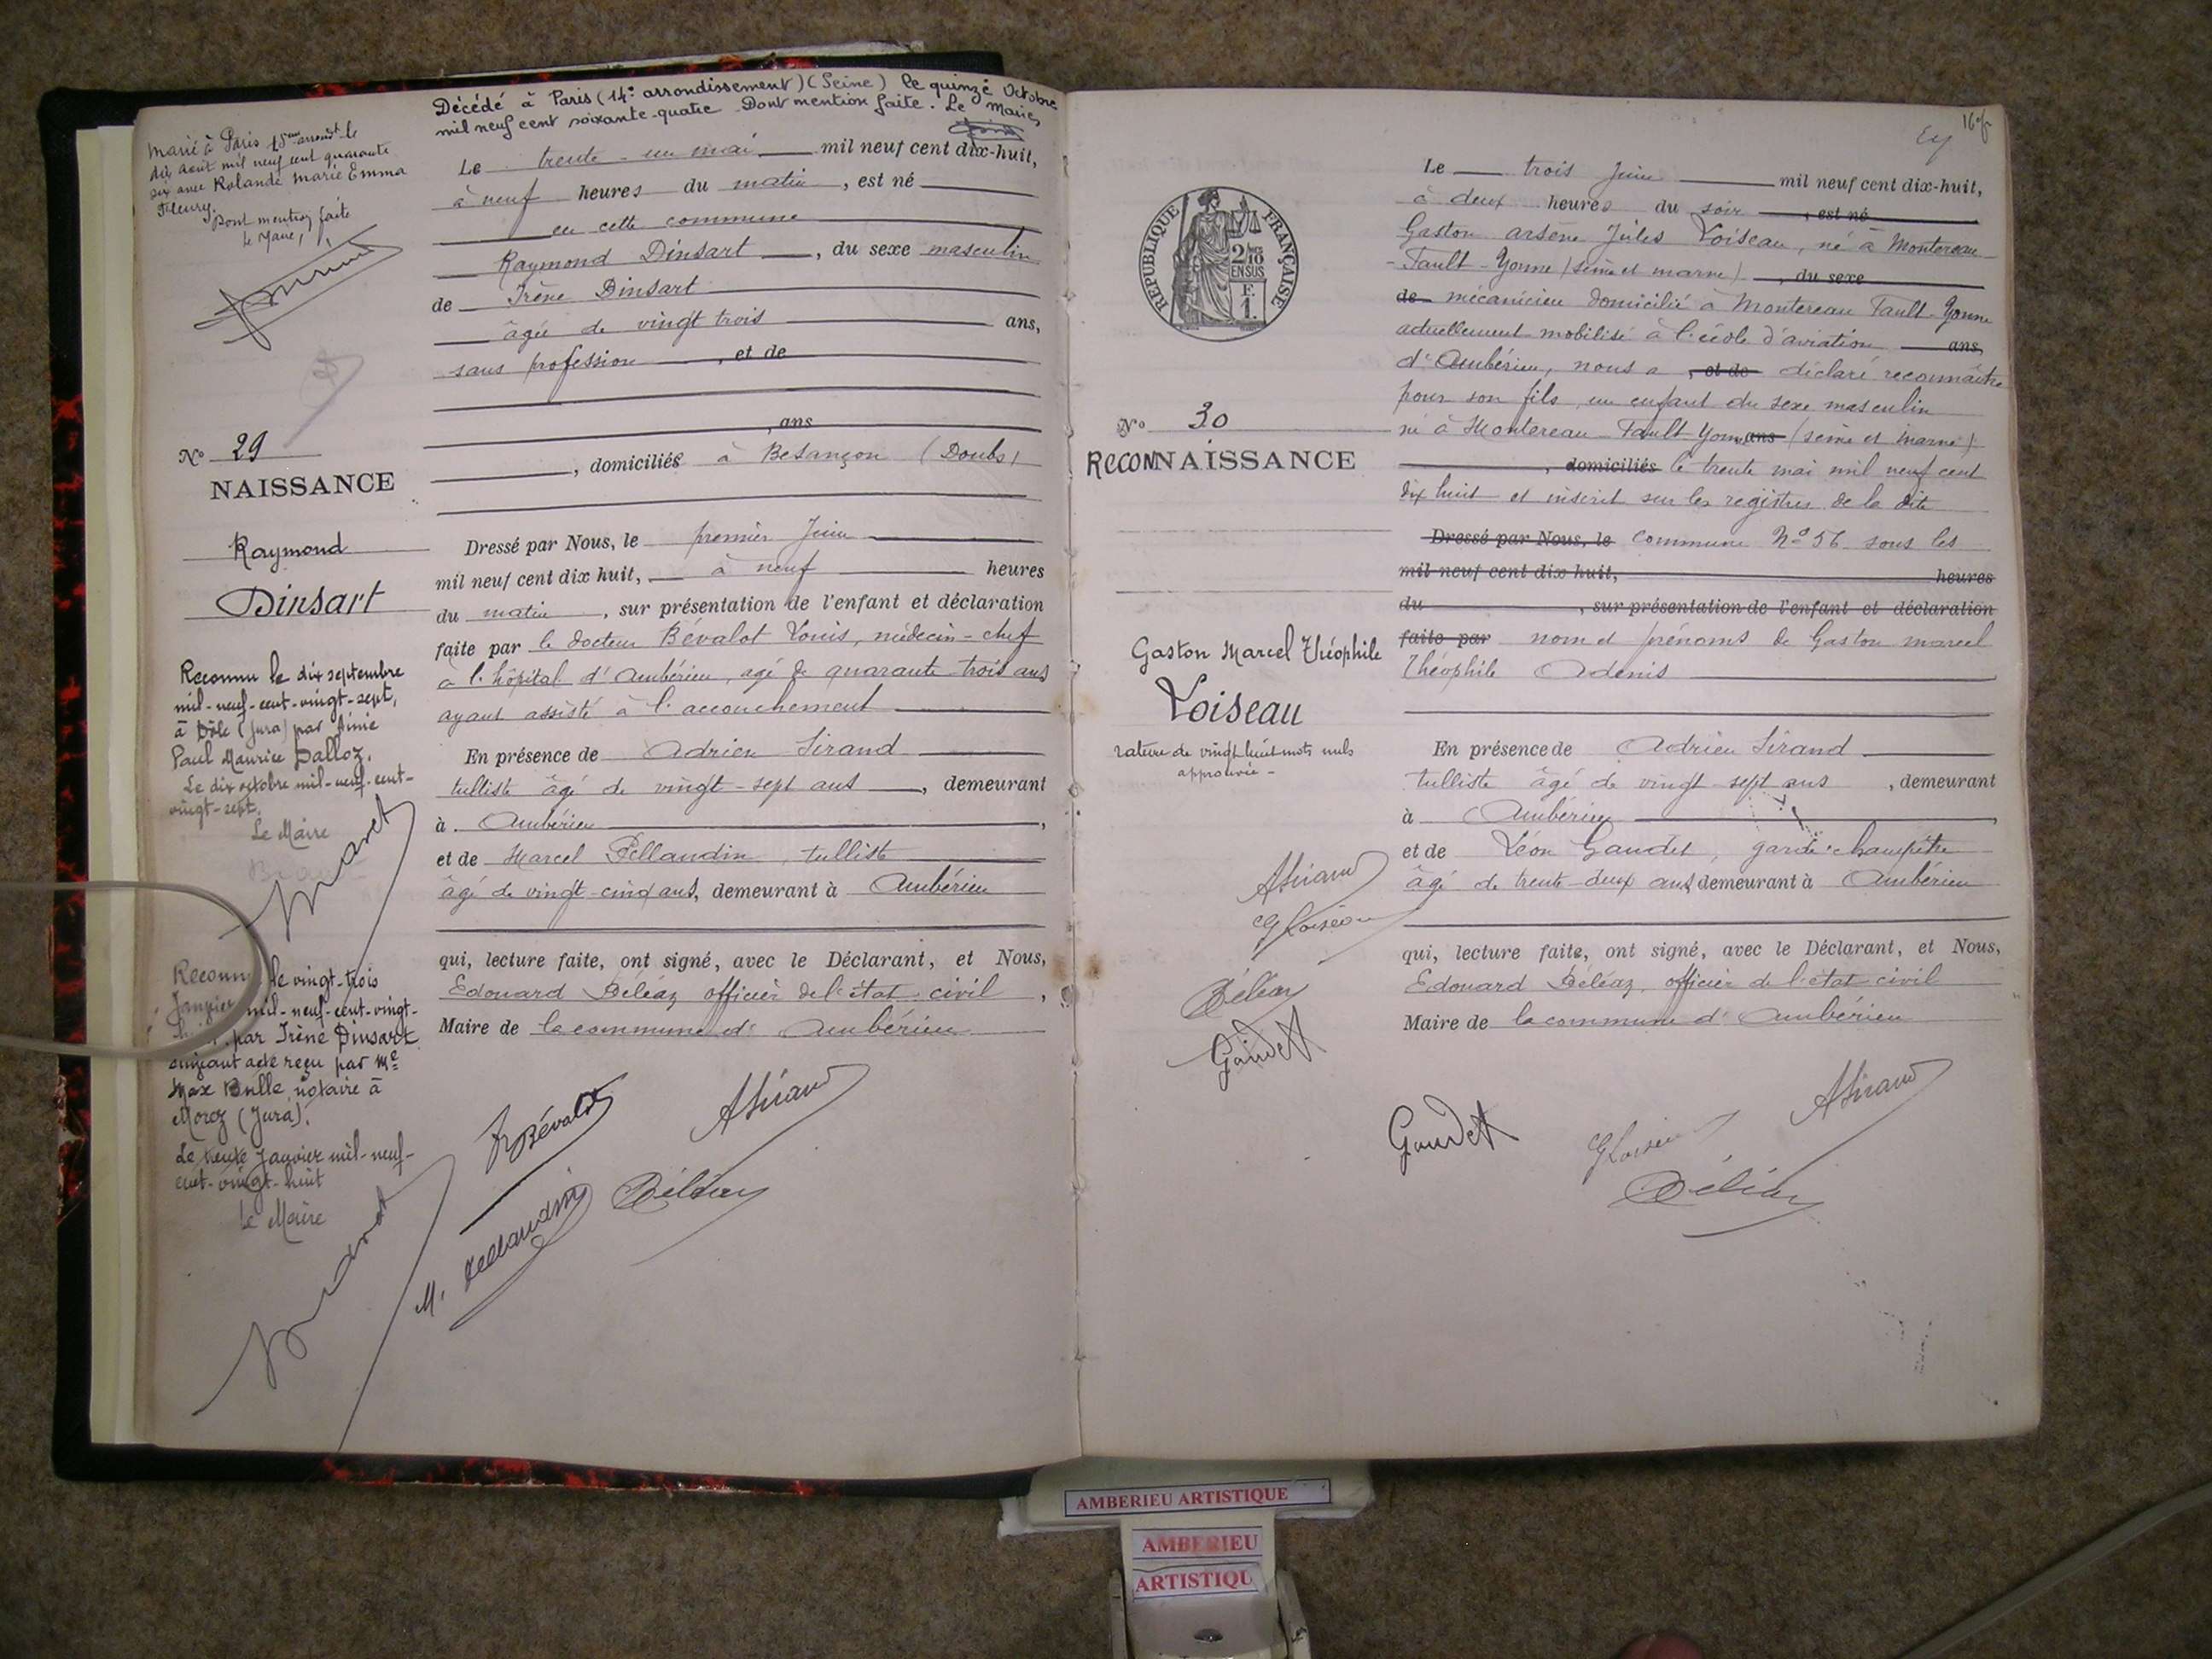 Décédé à Paris (14e arrondissement) (Seine) le quinze Octobre
mil neuf cent soixante-quatre Dont mention faite. Le Maire,
Marié à Paris 15eme arrondt le
dix août mil neuf cent quarante
six avec Rolande Marie Emma
Fleury.
Dont mention faite
le Maire,
No 29
NAISSANCE
Raymond
Dinsart
Reconnu le dix septembre
mil-neuf-cent-vingt-sept,
à Dôle (Jura) par Aimé
Paul Maurice Dalloz.
Le dix octobre mil-neuf-cent-
vingt-sept.
Le Maire
Reconnu le vingt-trois
Janvier mil-neuf-cent-vingt-
par Irène Dinsart
suivant acte reçu par Me
Max Bulle, notaire à
Morez (Jura).
Le trente Janvier mil-neuf-
cent-vingt-huit
Le Maire
Le trente-un mai mil neuf cent dix-huit,
à neuf heures du matin, est né
en cette commune
Raymond Dinsart, du sexe masculin
de Irène Dinsart
âgée de vingt trois ans,
sans profession, et de
, ans
, domiciliés à Besançon (Doubs)
Dressé par Nous, le premier Juin
mil neuf cent dix huit, à neuf heures
du matin, sur présentation de l'enfant et déclaration
faite par le docteur Bévalot Louis, médecin-chef
à l'hôpital d'Ambérieu, agé de quarante-trois ans
ayant assisté à l'accouchement
En présence de Adrien Sirand
tulliste âgé de vingt-sept ans, demeurant
à Ambérieu,
et de Marcel Pellaudin, tulliste
âgé de vingt-cinq ans, demeurant à Ambérieu
qui, lecture faite, ont signé, avec le Déclarant, et Nous,
Edouard Béléaz officier de l'état civil,
Maire de la commune d'Ambérieu
Bévalot
ASirand
M. Pellaudin
Béléaz
16
RÉPUBLIQUE FRANÇAISE
2/10
EN SUS
F.
1.
No 30
RECONNAISSANCE
Gaston Marcel Théophile
Loiseau
rature de vingt huit mots nuls
approuvée -
ASirand
GLoiseau
Béléaz
Gaudet
Le trois Juin mil neuf cent dix-huit,
à deux heures du soir, est né
Gaston arsène Jules Loiseau, né à Montereau-
-Fault-Yonne (seine et marne), du sexe
de mécanicien domicilié à Montereau Fault-Yonne
actuellement mobilisé à l'école d'aviation ans,
d'Ambérieu, nous a, et de déclaré reconnaître
pour son fils, un enfant du sexe masculin
né à Montereau-Fault Yonne ans (seine et marne)
, domiciliés le trente mai mil neuf cent
dix huit et inscrit sur les registres de la dite
Dressé par Nous, le commune No 56 sous les
mil neuf cent dix huit, heures
du, sur présentation de l'enfant et déclaration
faite par nom et prénoms de Gaston marcel
Théophile Adenis
En présence de Adrien Sirand
tulliste âgé de vingt-sept ans, demeurant
à Ambérieu,
et de Léon Gaudet, garde-champêtre
âgé de trente-deux ans, demeurant à Ambérieu
qui, lecture faite, ont signé, avec le Déclarant, et Nous,
Edouard Béléaz, officier de l'état civil
Maire de la commune d'Ambérieu
Gaudet
GLoiseau
ASirand
Béléaz
AMBERIEU ARTISTIQUE
AMBERIEU
ARTISTIQU